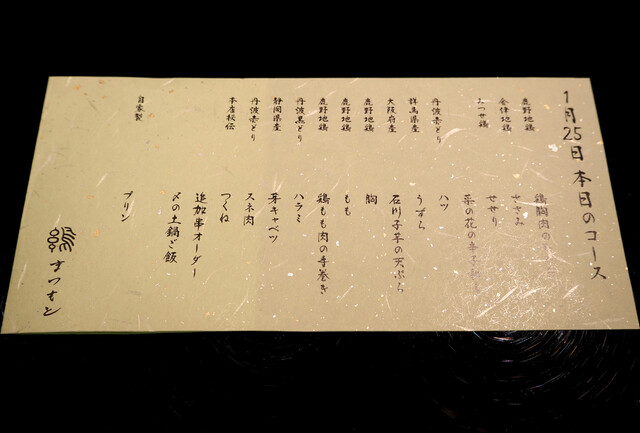 1月25日 本日のコース
鹿野地鶏 鶏胸肉の
会津地鶏 ささみ
みつせ鶏 せせり
菜の花の
丹波赤どり ハツ
群馬県産 うずら
大阪府産 石川子芋の天ぷら
鹿野地鶏 胸
鹿野地鶏 もも
鹿野地鶏 鶏もも肉の手巻き
丹波黒どり ハラミ
静岡県産 芽キャベツ
丹波赤どり スネ肉
本店秘伝 つくね
追加串オーダー
〆の土鍋ご飯
自家製 プリン